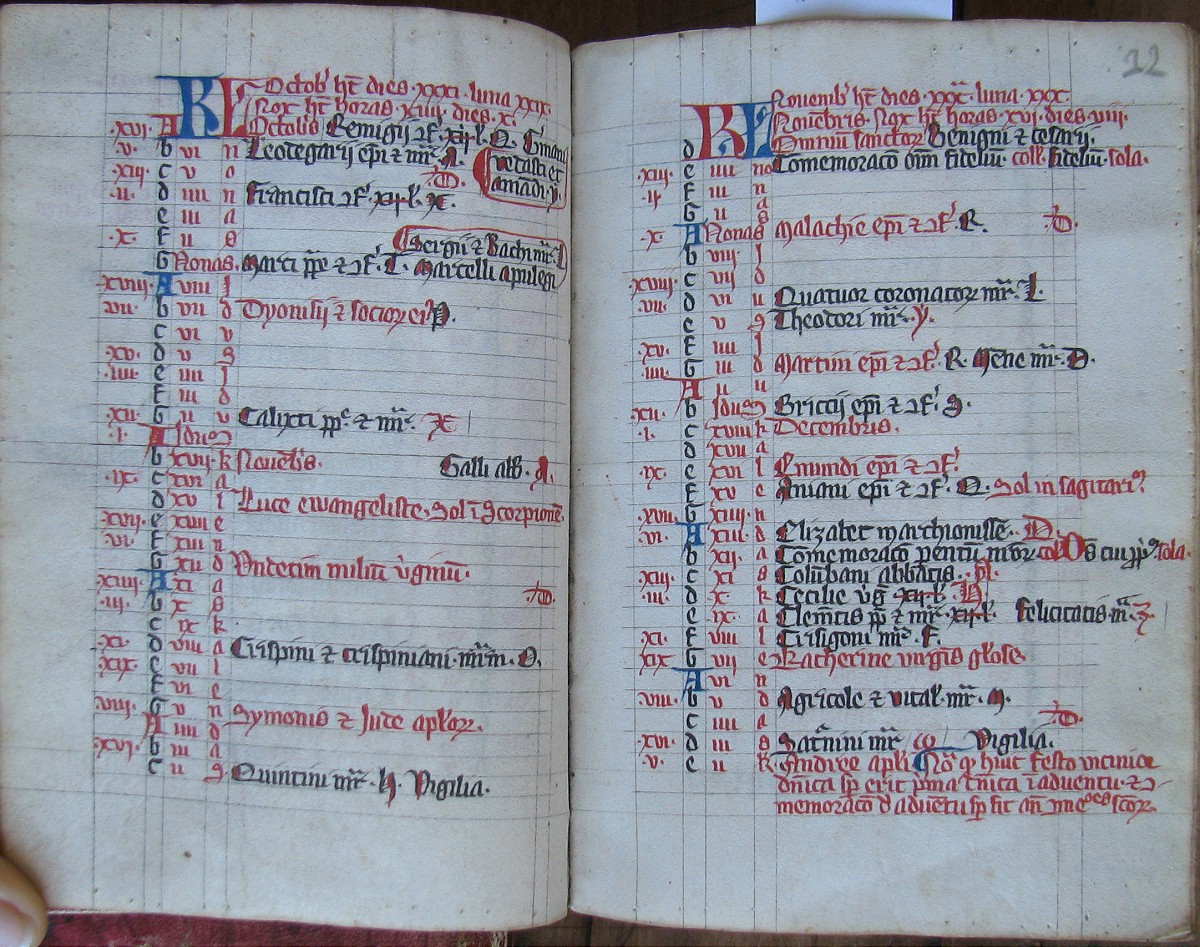 KL Octob' ht dies xxxi. luna xxix.
Nox ht horas xiiii. dies x.
xvi. A Octobris Remigii
v. b vi n Leodegarii epi et mr. A. vedasti et
xiii. c v o amandi
ii. d iiii n Francisci
e iii a
x. f ii s Sergii et Bachi mr.
G Nonas. Marci pp et Marcelli apulegi
xviii. A viii i
vii. b vii d Dyonisii et socior ei P.
c vi v
xv. d v s
iiii. e iiii i
f iii d
xii. G ii v Calixti pp et mr.
i. A Idus
b xvii k Novebris. Galli abb. A.
ix. c xvi a
d xv l Luce ewangeliste. Sol i scorpione
xvii. e xiiii e
vi. f xiii n
G xii d Undecim miliu virginu.
xiiii. A xi a
iii. b x s
c ix k
xi. d viii a Crispini et crispiniani. mr. O.
xix. e vii l
f vi e
viii. G v n Symonis et Jude aplor.
A iiii d
xvi. b iii a
c ii s Quintini mr. Vigilia.
22
KL Novemb' ht dies xxx. luna xxx.
Novebris. Nox ht horas xvi. dies viii.
d Omniu sanctor Benigni et cesarii.
xiii. e iiii no Comemoraco omi fideliu coll. fideliu sola.
ii. f iii n
G ii a
x. A Nonas Malachie epi et R.
b viii i
xviii. c vii d
vii. d vi u Quatuor coronator mr. L.
e v s Theodori mr. y.
xv. f iiii i
iiii. G iii d Martini epi et R. Mene mr. D.
A ii u
xii. b Idus Briccii epi et S.
i. c xviii k Decembris.
d xvii a
ix. e xvi l Emundi epi et
f xv e Aniani epi et O. Sol in sagitario
xvii. G xiiii n
vi. A xiii d Elizabet marchionisse. D.
b xii. a Comemoraco sola.
xiiii. c xi s Columbani abbatis.
iii. d x k Cecilie vg
e ix. a Clemetis pp et mr. felicitatis m.
xi. f viii l Crisigoni mr. F.
xix G vii e Katherine virginis glose
A vi n
viii. b v d Agricole et vital. mr. M.
c iiii a
xvi. d iii s Saturnini mr Vigilia.
v. e ii k Andree apli No q huic festo vicinior
dnica sp erit pma dnica i adventu. et
memoraco d adventu sp fit